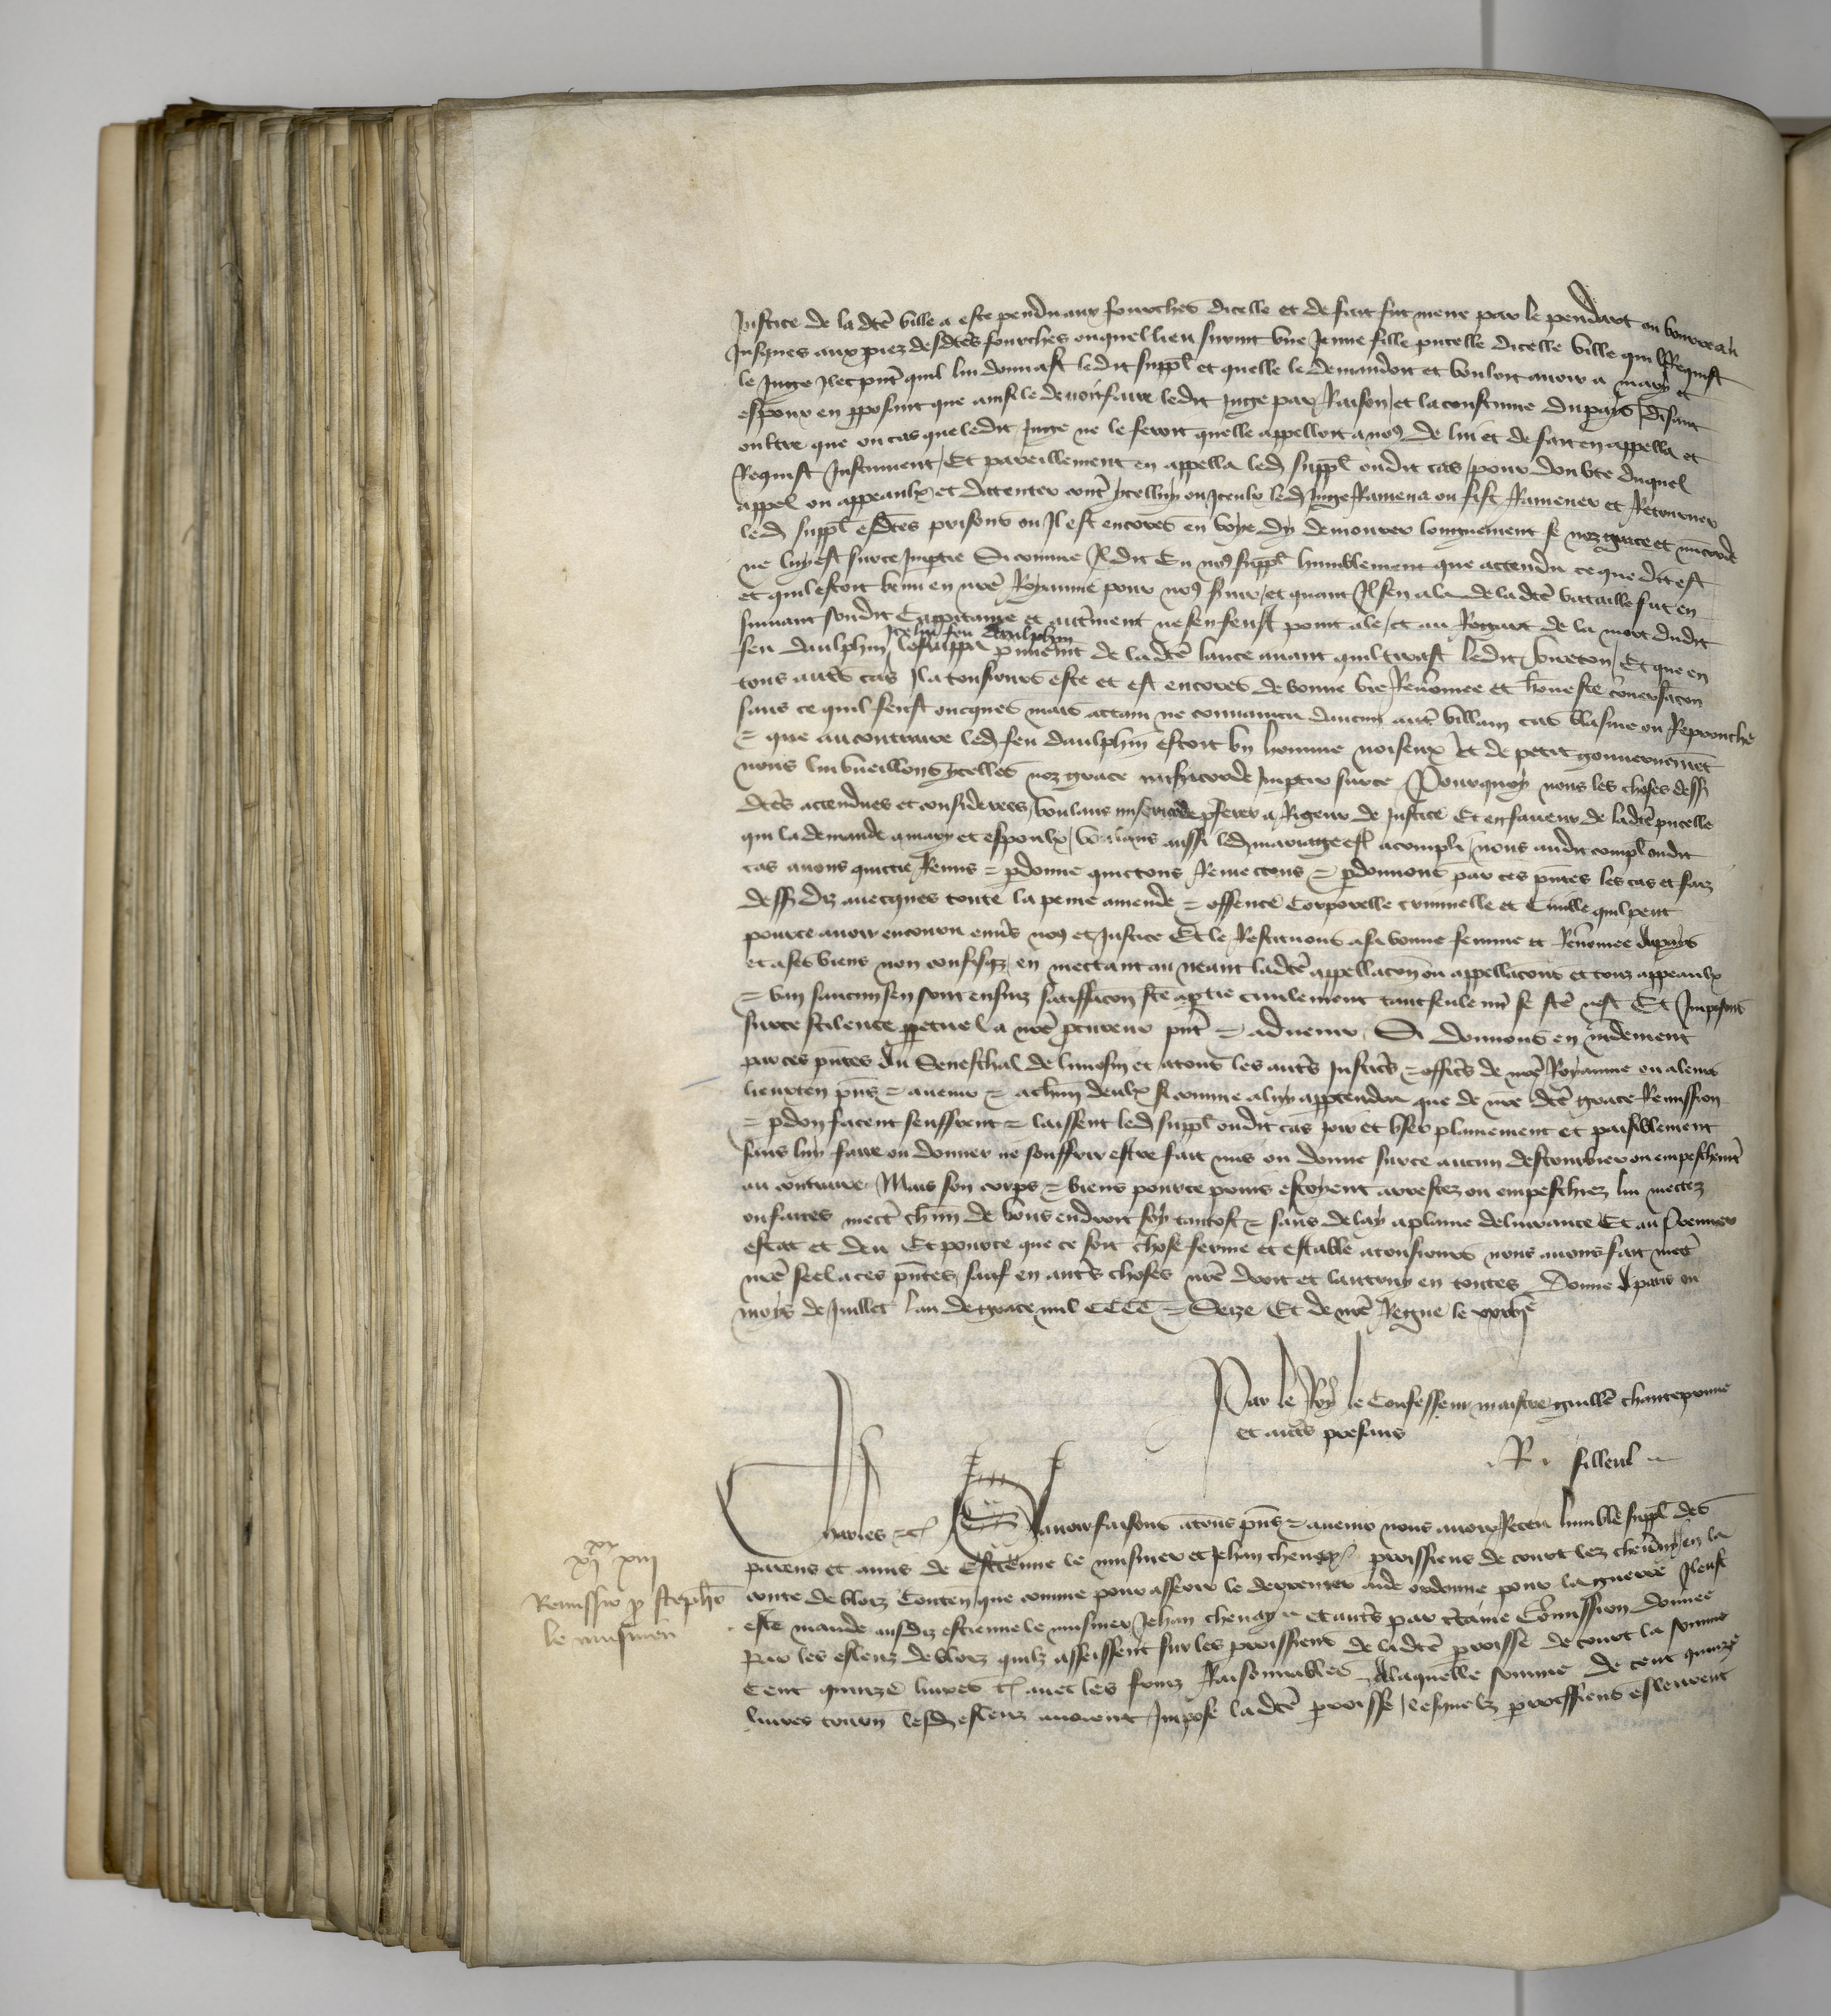 Justice de la dcē ville a este pendu aux fourches dicelle et de fait fut mene par le pendart ou bourreau
Jusques aux piez desdcēs fourches ouquel lieu survint une Jeune fille pucelle dicelle ville qui Requist
le Juge Jlec pnt quil lui donnast ledit suppl et quelle le demandoit et vouloit avoir a mary et
espoux en pposant que ainsi le devoit faire ledit Juge par Raison et la coustume du pays disant
oultre que ou cas que ledit Juge ne le feroit quelle appelloit a nos de lui et de fait en appella et
Requist Instrument Et pareillement en appella led suppl oudit cas pour doubte duquel
appel ou appeaulx et dattenter contre ycelluy ou Jceulx led Juge Ramena ou fist Ramener et Retourner
led suppl esdcēs prisons ou Jl est encores en voye dy demourer longuement se noz grace et miscorde
ne luy est sur ce Jmptie Si comme Jl dit En nos suppl humblement que attendu ce que dit est
et quil estoit venu en nrē Royaume pour nos servir et quant Jl sen ala de la dcē bataille fut en
suivant sondit Cappitaine et autrement ne sen feust point ale et au Regart de la mort dudit
feu daulphin Jcelui feu daulphin le frappa premiemt de la dcē lance avant quil tirast ledit bureton Et que en
tous autres cas Jl a tousiours este et est encores de bonne vie Renommee et honneste conversacon
sans ce quil feust oncques mais actaint ne convaincu daucun autre villain cas blasme ou Reprouche
et que au contraire led feu daulphin estoit un homme noiseux et de petit gouvernement
nous lui vueillons ycelles noz grace misericorde Jmptir sur ce Pourquoy nous les choses dess
dcēs attendues et considerees voulans misericorde pferer a Rigeur de Justice Et en faveur de ladcē pucelle
qui la demande a mary et espoulx voulans aussi led mariage est acompli nous audit suppl oudit
cas avons quictie Remis et pdonne quictons Remectons et pdonnons par ces pntes les cas et faiz
dess diz avecques toute la peine amende et offence Corporelle criminelle et Civille quil peut
pour ce avoir encouru envers nos et Justice Et le Restituons a sa bonne femme et Renommee au pays
et a ses biens non confisqz en mectant au neant ladcē appellacon ou appellacons et tous appeaulx
et ban saucun sen sont ensuiz satisfacon fcē a ptie civilement tant seulemt se fcē nest Et Jmposons
sur ce scilence ppetuel a nrē pcureur pnt et advenir Si donnons en mdement
par ces pntes au Seneschal de limosin et a tous les autres Justiciers et officers de nrē Royaume ou a leurs
lieuxten pns et avenir et a chun deulx si comme a luy apptendra que de nre dcē grace Remission
et pdon facent seuffrent et laissent led suppl oudit cas joir et user plainement et paisiblement
sans luy faire ou donner ne souffrir estre fait mis ou donne sur ce aucun destourbier ou empeschemt
au contraire Mais son corps et biens pour ce prins estoyent arrestez ou empeschiez lui mectez
ou faites mectre chun de vous endroit soy tantost et sans delay a plaine delivrance Et au premier
estat et deu Et pour ce que ce soit chose ferme et estable a tousiours nous avons fait mectre
nrē seel a ces pntes sauf en autres choses nrē droit et lautruy en toutes Donne a paris ou
moys de Juillet lan de grace mil CCCC et Seize Et de nrē Regne le xxxvjē
Par le Roy le Confesseur maistre guillē chanteprime
et autres presens
R. filleul
Charles etc Savoir faisons a tous pns et avenir nous avoir Receu lumble suppl des
parens et amis de Estienne le musnier et Jehan chenay proissiens de court lez cheverny en la
conte de blois Conten que comme pour asseoir le derrenier aide ordonne pour la guerre Jl eust
este mande ausdiz estienne le musnier Jehan chenay et autres par certaine Commission donnee
par les esleuz de blois quilz asseissent sur les proissiens de ladcē proisse de court la somme
Cent quinze livres t avec les fraiz Raisonnables A laquelle somme de cent quinze
livres tourn lesd esleuz avoient Jmpose ladcē proisse lesquelz proissiens esleurent
xx
xj xiij
Remissio p Stephō
le musnier